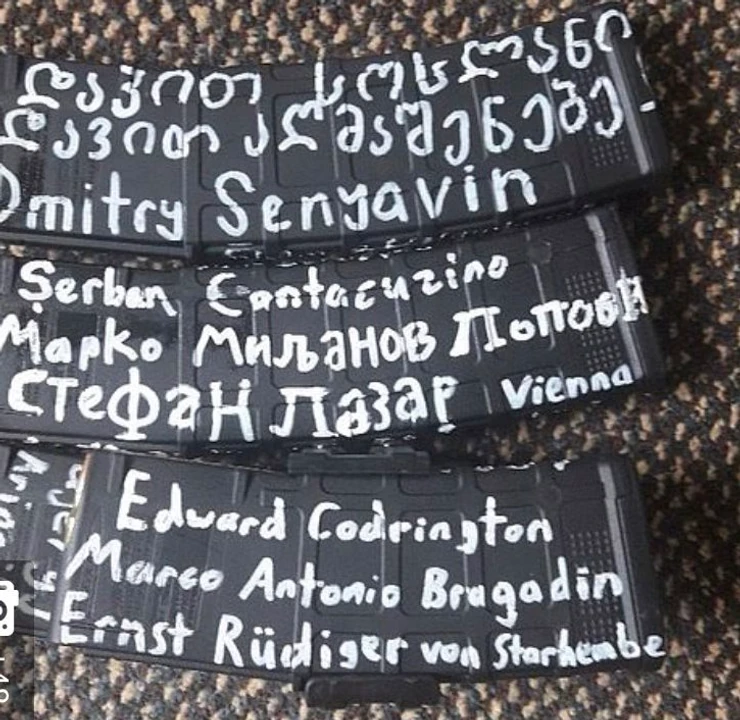 დავით სოსლანი
დავით აღმაშენებე
Dmitry Senyavin
Șerban Cantacuzino
Марко Миљанов Попови
Стефан Лазар Vienna
Edward Codrington
Marco Antonio Bragadin
Ernst Rüdiger von Starhembe